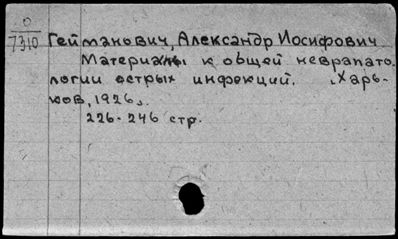 О
7310
Гейманович, Александр Иосифович
Материалы к общей неврапато-
логии острых инфекций. „Харь-
ков, 1926„.
226-246 стр.